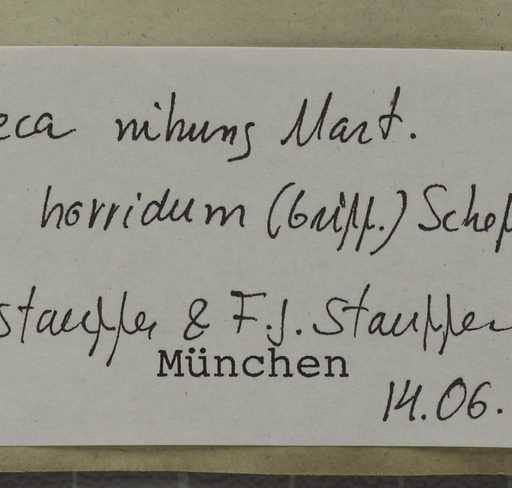 eca nibung Mart.
horridum (Griff.) Schef
Stauffer & F.J. Stauffer
München
14.06.